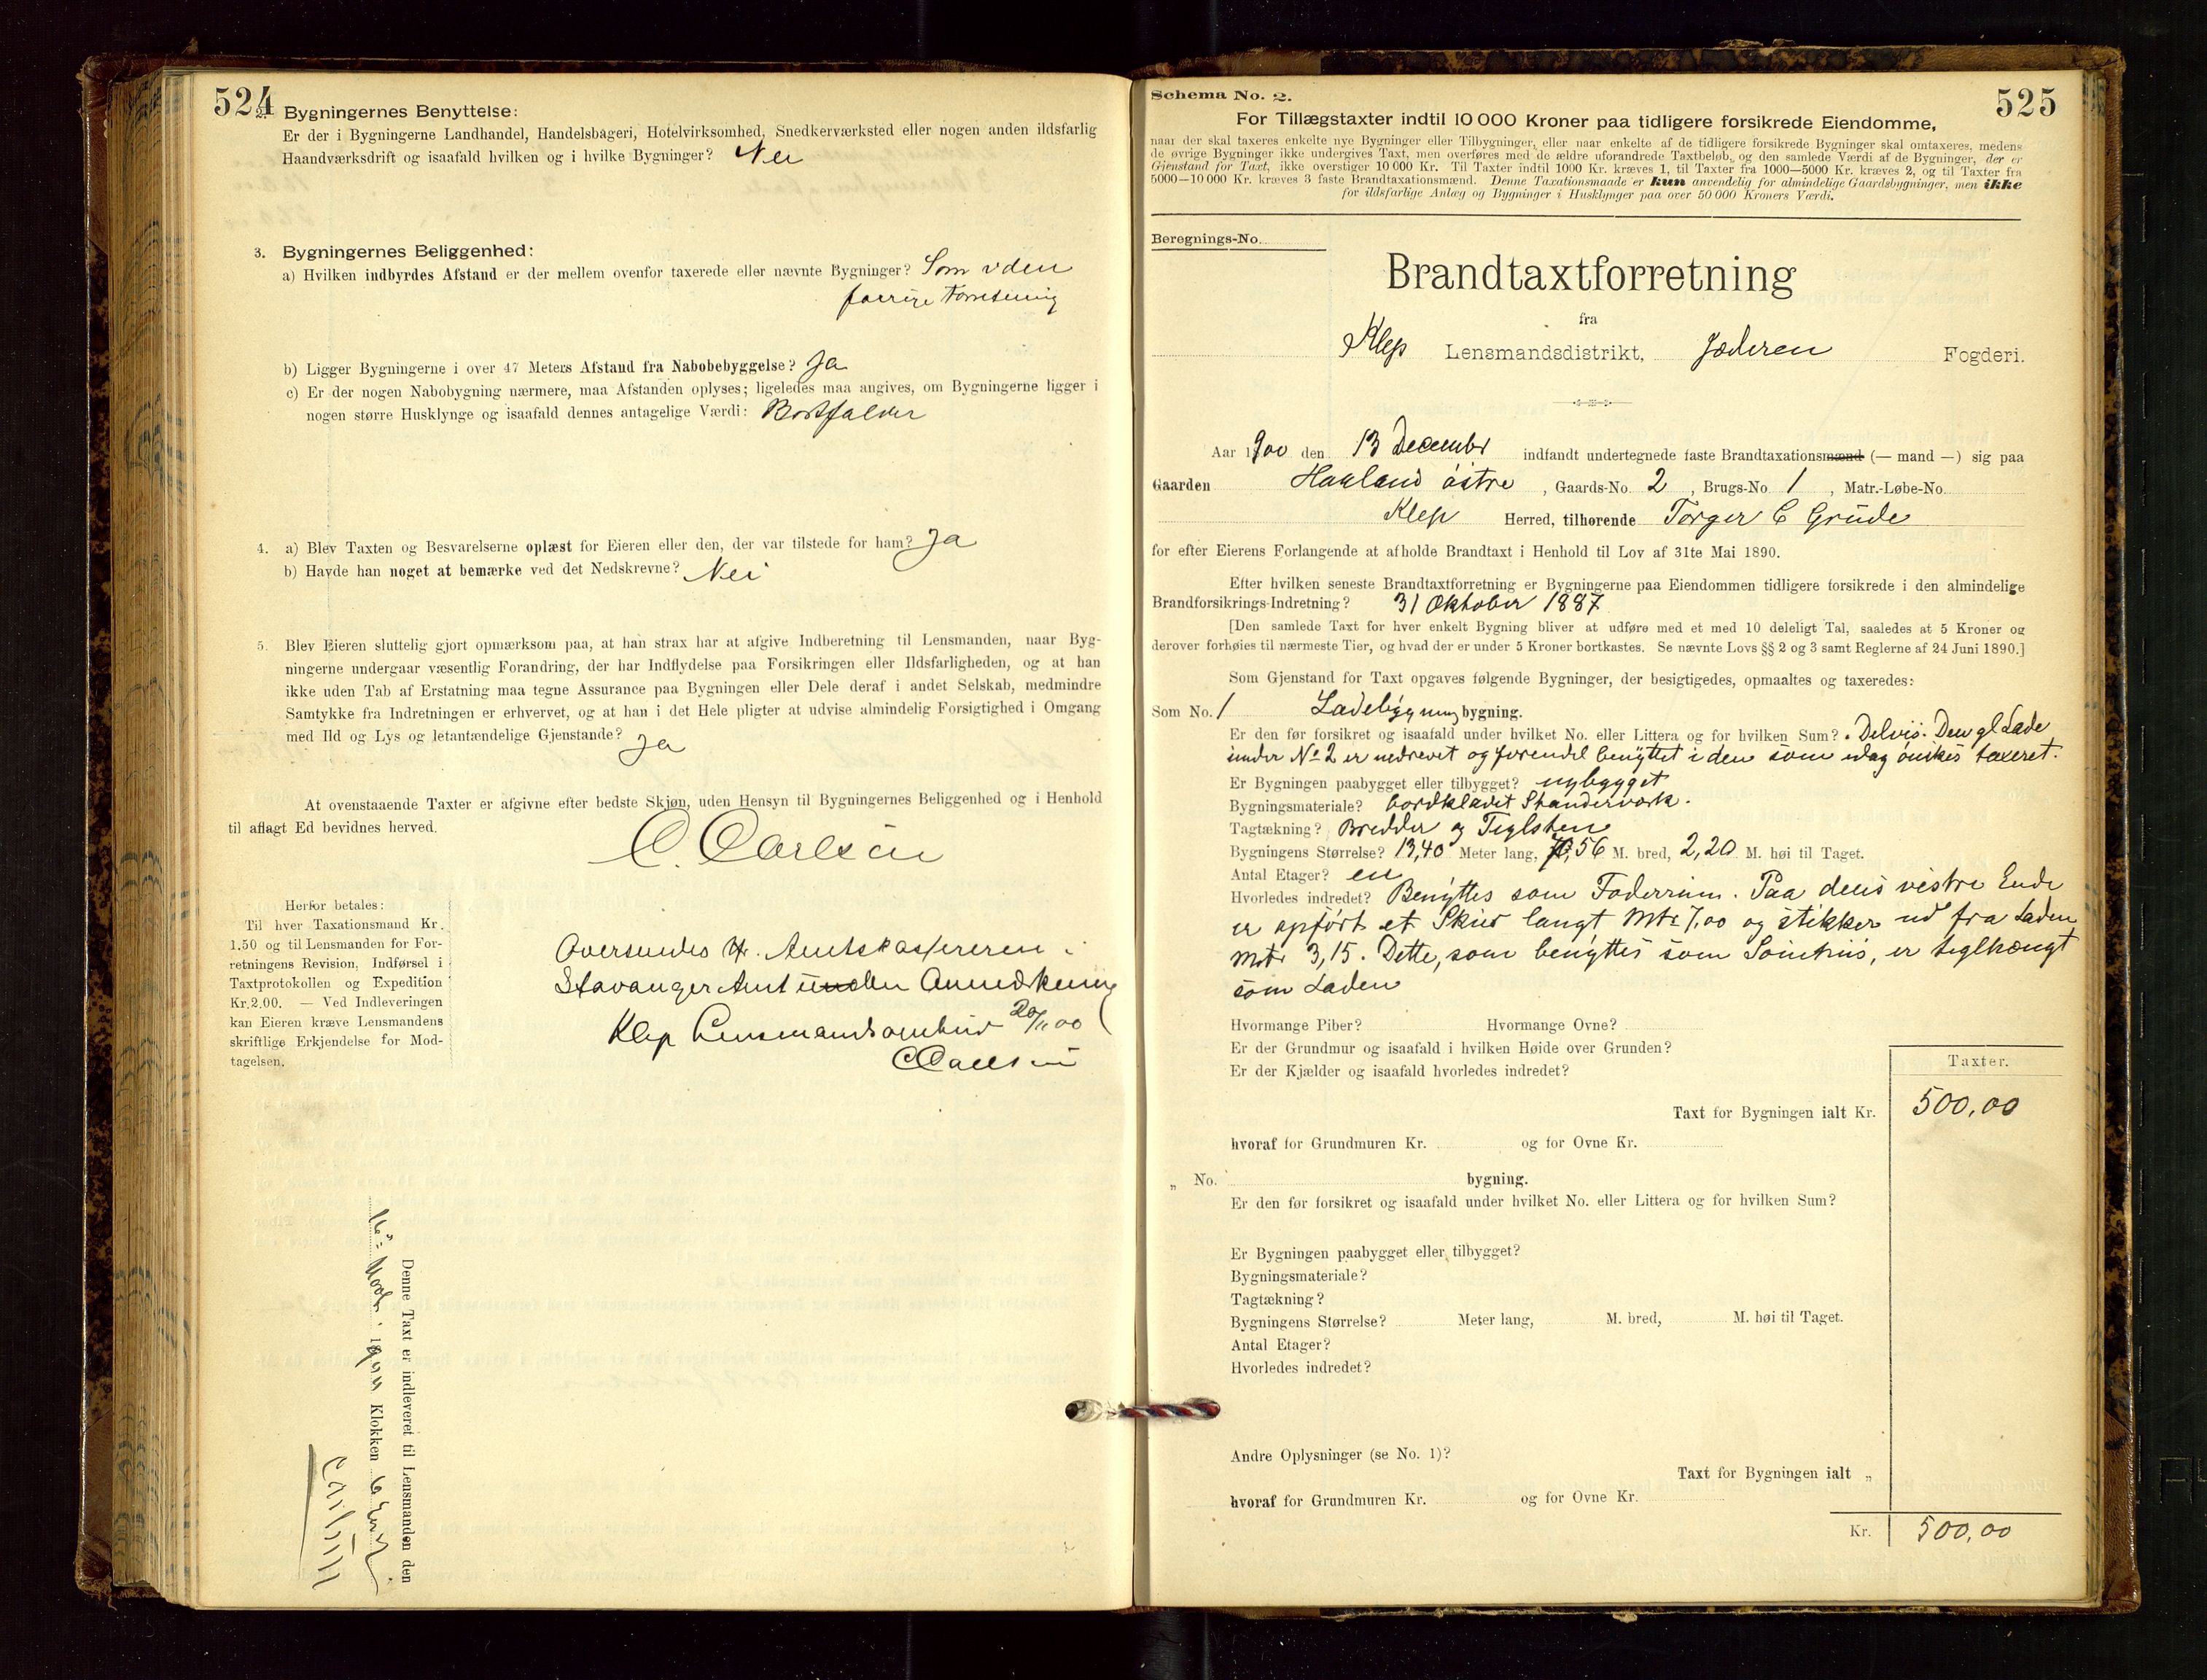 524
2. Bygningernes Benyttelse:
Er der i Bygningerne Landhandel, Handelsbageri, Hotelvirksomhed, Snedkerværksted eller nogen anden ildsfarlig
Haandværksdrift og isaafald hvilken og i hvilke Bygninger? Nei
3. Bygningernes Beliggenhed:
a) Hvilken indbyrdes Afstand er der mellem ovenfor taxerede eller nævnte Bygninger? Som i den
forrige Forretning
b) Ligger Bygningerne i over 47 Meters Afstand fra Nabobebyggelse? Ja
c) Er der nogen Nabobygning nærmere, maa Afstanden oplyses; ligeledes maa angives, om Bygningerne ligger i
nogen større Husklynge og isaafald dennes antagelige Værdi: Bortfalder
4. a) Blev Taxten og Besvarelserne oplæst for Eieren eller den, der var tilstede for ham? Ja
b) Havde han noget at bemærke ved det Nedskrevne? Nei
5. Blev Eieren sluttelig gjort opmærksom paa, at han strax har at afgive Indberetning til Lensmanden, naar Byg-
ningerne undergaar væsentlig Forandring, der har Indflydelse paa Forsikringen eller Ildsfarligheden, og at han
ikke uden Tab af Erstatning maa tegne Assurance paa Bygningen eller Dele deraf i andet Selskab, medmindre
Samtykke fra Indretningen er erhvervet, og at han i det Hele pligter at udvise almindelig Forsigtighed i Omgang
med Ild og Lys og letantændelige Gjenstande? Ja
At ovenstaaende Taxter er afgivne efter bedste Skjøn, uden Hensyn til Bygningernes Beliggenhed og i Henhold
til aflagt Ed bevidnes herved.
C. Carlsen
Herfor betales:
Til hver Taxationsmand Kr.
1.50 og til Lensmanden for For-
retningens Revision, Indførsel i
Taxtprotokollen og Expedition
Kr. 2.00. — Ved Indleveringen
kan Eieren kræve Lensmandens
skriftlige Erkjendelse for Mod-
tagelsen.
Oversendes Hr. Amtskassereren i
Stavanger Amt uden Anmerkning
Klep Lensmandsombud 20/11 00
C Carlsen
Denne Taxt er indleveret til Lensmanden den
16de Novbr. 1900 Klokken 6 Em
Carlsen
525
Schema No. 2.
For Tillægstaxter indtil 10 000 Kroner paa tidligere forsikrede Eiendomme,
naar der skal taxeres enkelte nye Bygninger eller Tilbygninger, eller naar enkelte af de tidligere forsikrede Bygninger skal omtaxeres, medens
de øvrige Bygninger ikke undergives Taxt, men overføres med de ældre uforandrede Taxtbeløb, og den samlede Værdi af de Bygninger, der er
Gjenstand for Taxt, ikke overstiger 10 000 Kr. Til Taxter indtil 1000 Kr. kræves 1, til Taxter fra 1000—5000 Kr. kræves 2, og til Taxter fra
5000—10 000 Kr. kræves 3 faste Brandtaxationsmænd. Denne Taxationsmaade er kun anvendelig for almindelige Gaardsbygninger, men ikke
for ildsfarlige Anlæg og Bygninger i Husklynger paa over 50 000 Kroners Værdi.
Beregnings-No.
Brandtaxtforretning
fra
Klep Lensmandsdistrikt, Jæderen Fogderi.
Aar 1900 den 13 Decembr indfandt undertegnede faste Brandtaxationsmænd (— mand —) sig paa
Gaarden Haaland østre, Gaards-No. 2, Brugs-No. 1, Matr.-Løbe-No.
Klep Herred, tilhørende Torger C Grude
for efter Eierens Forlangende at afholde Brandtaxt i Henhold til Lov af 31te Mai 1890.
Efter hvilken seneste Brandtaxtforretning er Bygningerne paa Eiendommen tidligere forsikrede i den almindelige
Brandforsikrings-Indretning? 31 Oktober 1887
[Den samlede Taxt for hver enkelt Bygning bliver at udføre med et med 10 deleligt Tal, saaledes at 5 Kroner og
derover forhøies til nærmeste Tier, og hvad der er under 5 Kroner bortkastes. Se nævnte Lovs §§ 2 og 3 samt Reglerne af 24 Juni 1890.]
Som Gjenstand for Taxt opgaves følgende Bygninger, der besigtigedes, opmaaltes og taxeredes:
Som No. 1 Ladebygning bygning.
Er den før forsikret og isaafald under hvilket No. eller Littera og for hvilken Sum? Delvis. Den gl Lade
under No 2 er nedrevet og forendel benyttet i den som idag ønskes taxeret.
Er Bygningen paabygget eller tilbygget? nybygget
Bygningsmateriale? bordklædt Standerværk.
Tagtækning? Bredder og Teglsten
Bygningens Størrelse? 13,40 Meter lang, 7,56 M. bred, 2,20 M. høi til Taget.
Antal Etager? en
Hvorledes indredet? Benyttes som Foderrum. Paa dens vestre Ende
er opført et Skur langt Mtr 7,00 og stikker ud fra Laden
Mtr 3,15. Dette, som benyttes som , er teglhængt
som Laden
Hvormange Piber? Hvormange Ovne?
Er der Grundmur og isaafald i hvilken Høide over Grunden?
Er der Kjælder og isaafald hvorledes indredet?
Taxter.
Taxt for Bygningen ialt Kr. 500,00
hvoraf for Grundmuren Kr. og for Ovne Kr.
„ No. bygning.
Er den før forsikret og isaafald under hvilket No. eller Littera og for hvilken Sum?
Er Bygningen paabygget eller tilbygget?
Bygningsmateriale?
Tagtækning?
Bygningens Størrelse? Meter lang, M. bred, M. høi til Taget.
Antal Etager?
Hvorledes indredet?
Andre Oplysninger (se No. 1)?
Taxt for Bygningen ialt „
hvoraf for Grundmuren Kr. og for Ovne Kr.
Kr. 500,00